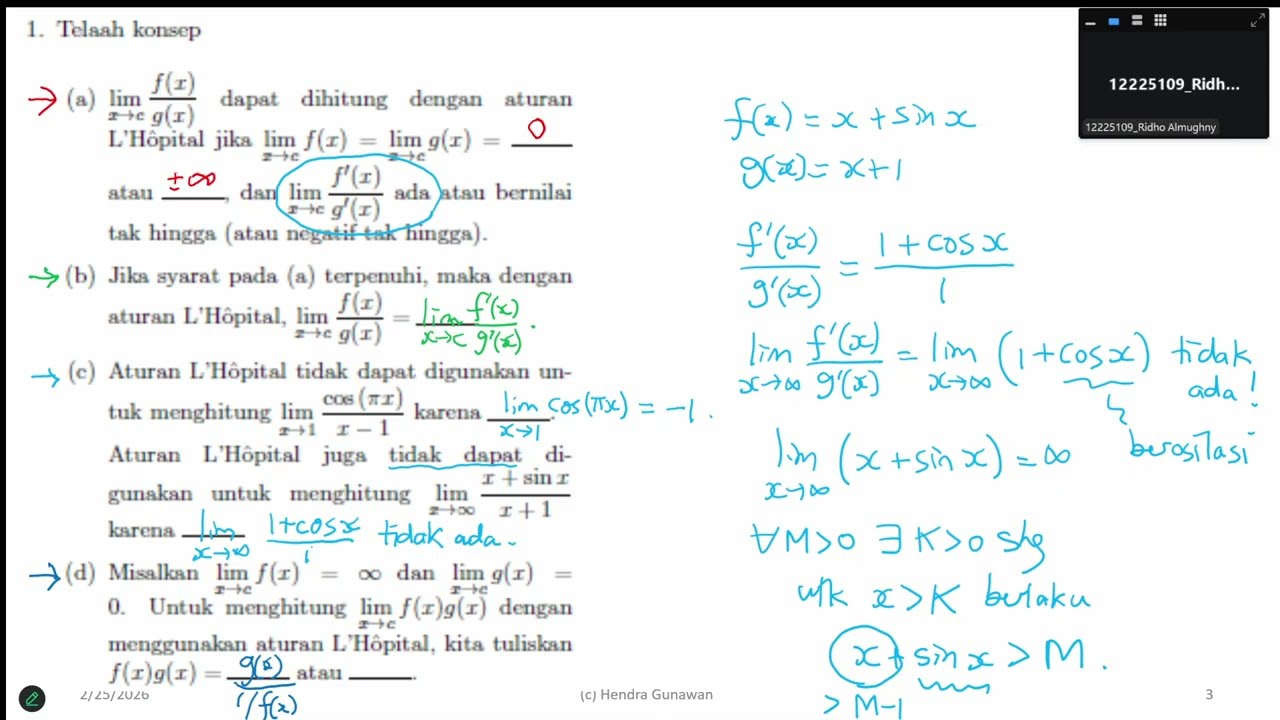 1. Telaah konsep
→ (a) lim x→c f(x)/g(x) dapat dihitung dengan aturan
L'Hôpital jika lim x→c f(x) = lim x→c g(x) = 0
atau ±∞, dan lim x→c f'(x)/g'(x) ada atau bernilai
tak hingga (atau negatif tak hingga).
→ (b) Jika syarat pada (a) terpenuhi, maka dengan
aturan L'Hôpital, lim x→c f(x)/g(x) = lim x→c f'(x)/g'(x).
→ (c) Aturan L'Hôpital tidak dapat digunakan un-
tuk menghitung lim x→1 cos(πx)/(x − 1) karena lim x→1 cos(πx) = −1.
Aturan L'Hôpital juga tidak dapat di-
gunakan untuk menghitung lim x→∞ (x + sin x)/(x + 1)
karena lim x→∞ (1+cos x)/1 tidak ada.
→ (d) Misalkan lim x→c f(x) = ∞ dan lim x→c g(x) =
0. Untuk menghitung lim x→c f(x)g(x) dengan
menggunakan aturan L'Hôpital, kita tuliskan
f(x)g(x) = g(x)/(1/f(x)) atau ____.
f(x) = x + sin x
g(x) = x + 1
f'(x)/g'(x) = (1 + cos x)/1
lim x→∞ f'(x)/g'(x) = lim x→∞ (1 + cos x) tidak
ada!
berosilasi
lim x→∞ (x + sin x) = ∞
∀M>0 ∃K>0 shg
utk x>K berlaku
x + sin x > M.
> M−1
12225109_Ridh...
12225109_Ridho Almughny
2/25/2026
(c) Hendra Gunawan
3